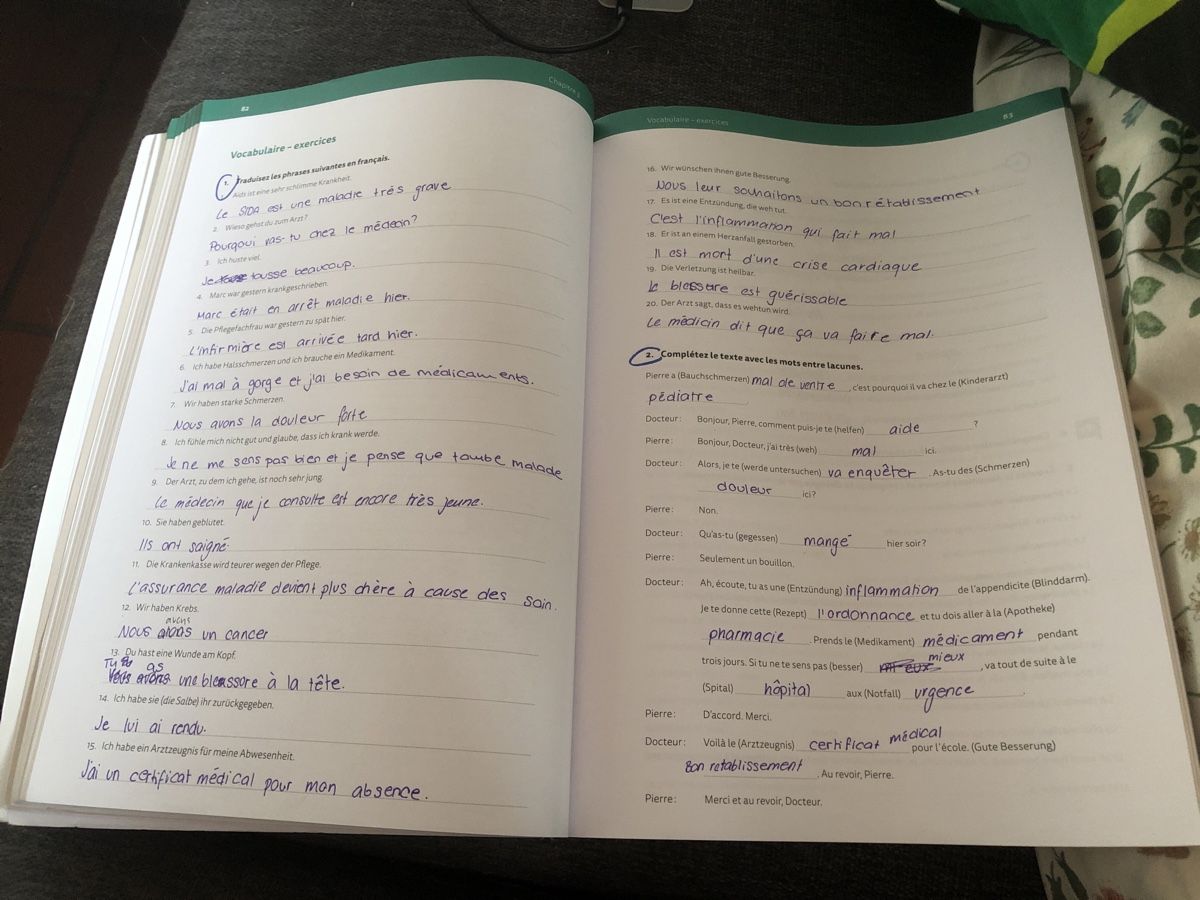 82
Chapitre 5
Vocabulaire – exercices
1. Traduisez les phrases suivantes en français.
Aids ist eine sehr schlimme Krankheit.
Le SIDA est une maladie très grave
2. Wieso gehst du zum Arzt?
Pourqoui vas-tu chez le médecin?
3. Ich huste viel.
Je tousse beaucoup.
4. Marc war gestern krankgeschrieben.
Marc était en arrêt maladie hier.
5. Die Pflegefachfrau war gestern zu spät hier.
L'infirmière est arrivée tard hier.
6. Ich habe Halsschmerzen und ich brauche ein Medikament.
J'ai mal à gorge et j'ai besoin de médicaments.
7. Wir haben starke Schmerzen.
Nous avons la douleur forte
8. Ich fühle mich nicht gut und glaube, dass ich krank werde.
Je ne me sens pas bien et je pense que tombe malade
9. Der Arzt, zu dem ich gehe, ist noch sehr jung.
Le médecin que je consulte est encore très jeune.
10. Sie haben geblutet.
Ils ont saigné.
11. Die Krankenkasse wird teurer wegen der Pflege.
L'assurance maladie devient plus chère à cause des soin.
12. Wir haben Krebs.
avons
Nous avons un cancer
13. Du hast eine Wunde am Kopf.
Tu as
une blessore à la tête.
14. Ich habe sie (die Salbe) ihr zurückgegeben.
Je lui ai rendu.
15. Ich habe ein Arztzeugnis für meine Abwesenheit.
J'ai un certificat médical pour mon absence.
Vocabulaire – exercices
83
16. Wir wünschen ihnen gute Besserung.
Nous leur souhaitons un bon rétablissement
17. Es ist eine Entzündung, die weh tut.
C'est l'inflammation qui fait mal
18. Er ist an einem Herzanfall gestorben.
Il est mort d'une crise cardiaque
19. Die Verletzung ist heilbar.
le blessare est guérissable
20. Der Arzt sagt, dass es wehtun wird.
Le médicin dit que ça va faire mal.
2. Complétez le texte avec les mots entre lacunes.
Pierre a (Bauchschmerzen) mal de ventre, c'est pourquoi il va chez le (Kinderarzt)
pédiatre.
Docteur: Bonjour, Pierre, comment puis-je te (helfen) aide ?
Pierre: Bonjour, Docteur, j'ai très (weh) mal ici.
Docteur: Alors, je te (werde untersuchen) va enquêter. As-tu des (Schmerzen)
douleur ici?
Pierre: Non.
Docteur: Qu'as-tu (gegessen) mangé hier soir?
Pierre: Seulement un bouillon.
Docteur: Ah, écoute, tu as une (Entzündung) inflammation de l'appendicite (Blinddarm).
Je te donne cette (Rezept) l'ordonnance et tu dois aller à la (Apotheke)
pharmacie. Prends le (Medikament) médicament pendant
trois jours. Si tu ne te sens pas (besser) mieux, va tout de suite à le
(Spital) hôpital aux (Notfall) urgence.
Pierre: D'accord. Merci.
Docteur: Voilà le (Arztzeugnis) certificat médical pour l'école. (Gute Besserung)
Bon retablissement. Au revoir, Pierre.
Pierre: Merci et au revoir, Docteur.